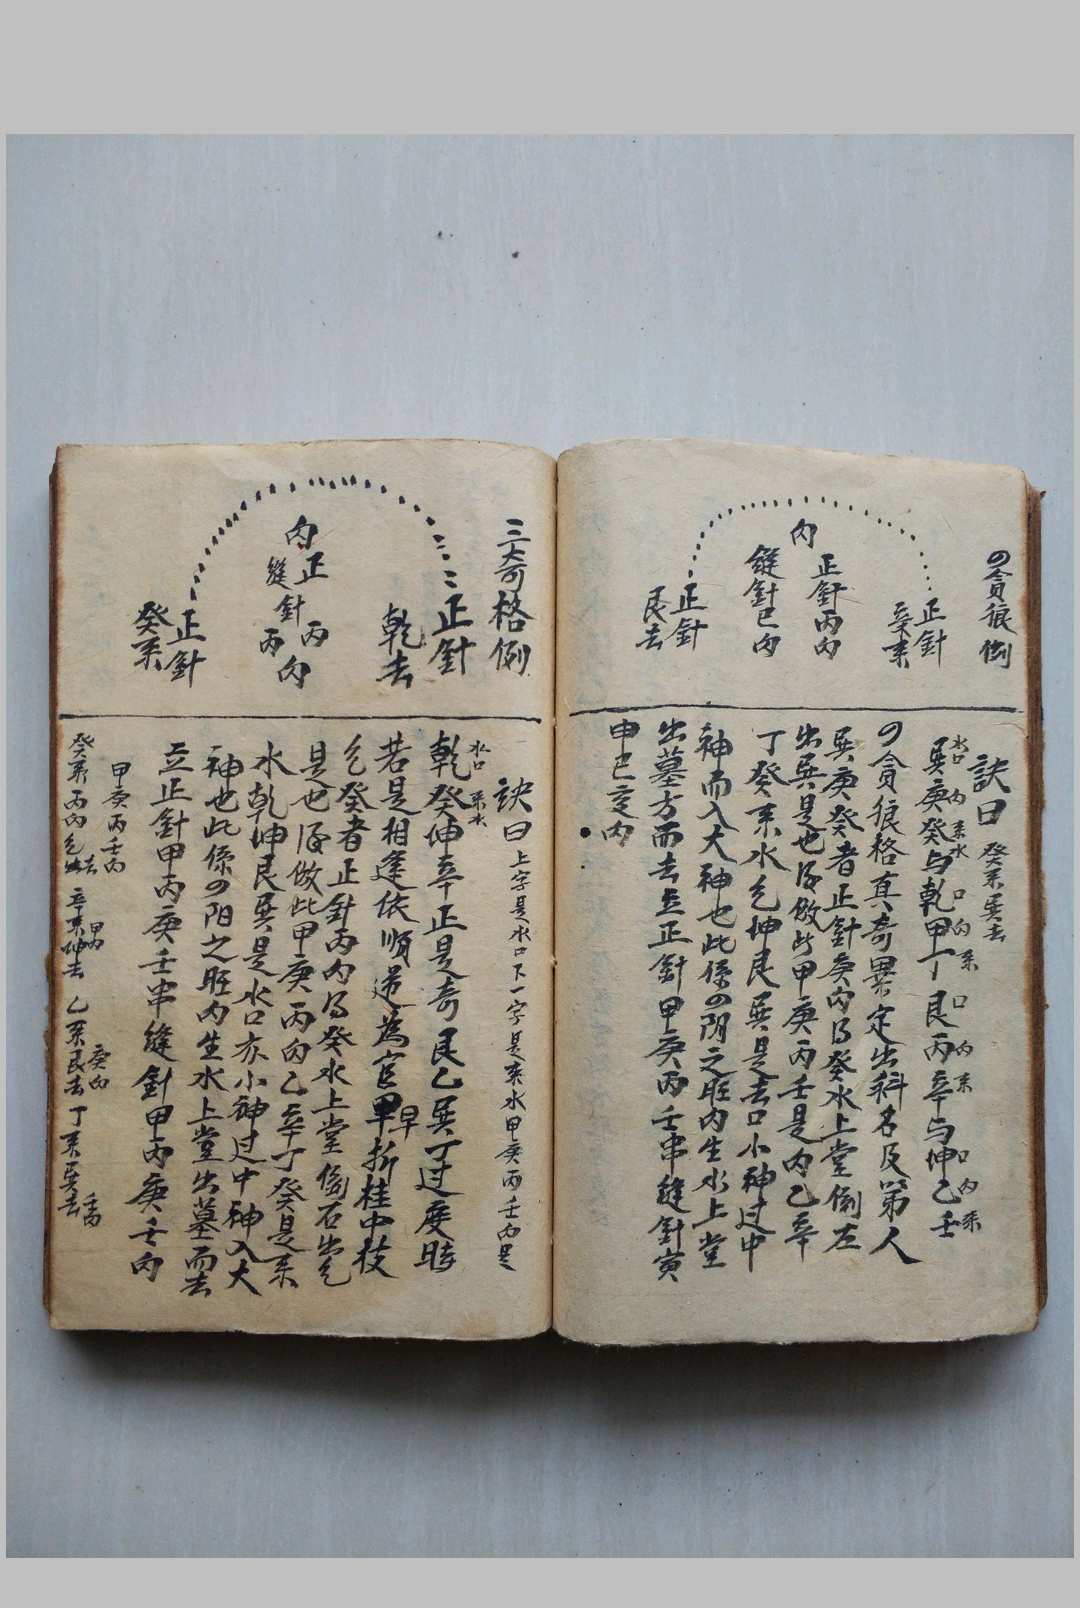 の貪狼例
正針
辛來
內
正針丙內
縫針巳內
正針
艮去
訣曰 癸來巽去
水口 內 來水 口 內 來 口 內 來 口 內 來
巽庚癸与乾甲丁艮丙辛与坤乙壬
の貪狼格真奇異定出科名及第人
巽庚癸者正針庚內得癸水上堂倒左
出巽是也餘倣此甲庚丙壬是內乙辛
丁癸來水乞坤艮巽是去口小神过中
神而入大神也此係の阴之旺內生水上堂
出墓方而去立正針甲庚丙壬串縫針寅
申巳亥內
三奇格例
正針
乾去
內
正
縫針
丙丙
內
正針
癸來
訣曰 上字是水口下一字是來水甲庚丙壬內是
水口 來水
乾癸坤辛正是奇艮乙巽丁过度時
若是相逢依順遞為官早折桂中枝
乞癸者正針丙內得癸水上堂倒右出乞
是也餘倣此甲庚丙內乙辛丁癸是來
水乾坤艮巽是水口亦小神过中神入大
神也此係の阳之旺內生水上堂出墓而去
立正針甲丙庚壬串縫針甲丙庚壬內
甲庚丙壬內
癸來丙內乞去 辛來甲內坤去 乙來庚內艮去 丁來壬內巽去